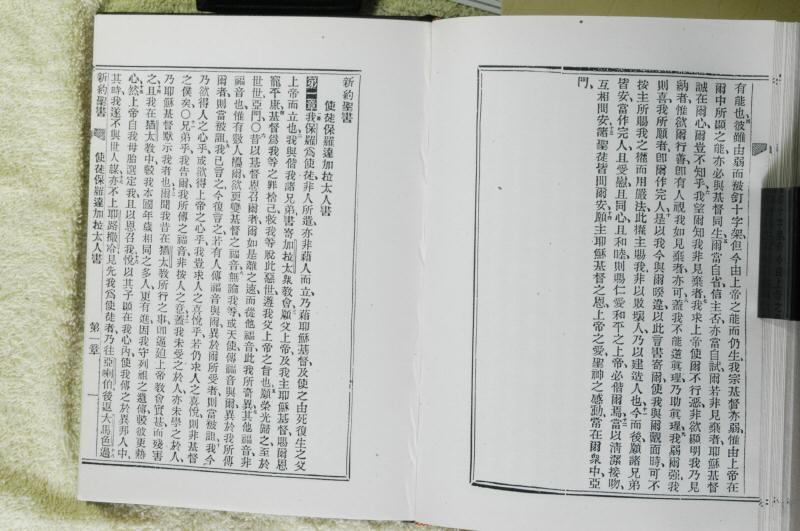 有能也彼雖由弱而被釘十字架但今由上帝之能而仍生我宗基督亦弱惟由上帝在
爾中所顯之能亦必與基督同生爾當自省信主否亦當自試爾若非見棄者耶穌基督
誠在爾心爾豈不知乎我望爾知我非見棄者我求上帝使爾不行惡非欲顯明我乃見
納者惟欲爾行善即有人視我如見棄者亦可蓋我不能逆眞理乃助眞理我弱爾強我
則喜我所願者即爾作完人是以我今與爾暌違以此言書寄爾使我與爾覿面時可不
按主所賜我之權而用嚴法此權主賜我非以敗壞人乃以建造人也今而後願諸兄弟
皆安當作完人且受慰且同心且和睦則賜仁愛和平之上帝必偕爾焉當以清潔接吻
互相問安諸聖徒皆問爾安願主耶穌基督之恩上帝之愛聖神之感動常在爾衆中亞
門
新約聖書
使徒保羅達加拉太人書
第一章我保羅爲使徒非人所遣亦非藉人而立乃藉耶穌基督及使之由死復生之父
上帝而立也我與偕我諸兄弟書寄加拉太衆教會願父上帝及我主耶穌基督賜爾恩
寵平康基督爲我等之罪捨己救我等脫此惡世遵我父上帝之旨也願榮光歸之至於
世世亞門〇昔以基督恩召爾者爾如是離之速而從他福音此我所奇異其他福音非
福音也惟有數人擾爾欲更變基督之福音無論我等或天使傳福音與爾異於我所傳
爾者則當被詛我已言之今復言之若有人傳福音與爾異於爾所受者則當被詛我今
乃欲得人之心乎或欲得上帝之心乎我豈求人之喜悅乎若仍求人之喜悅則非基督
之僕矣〇兄弟乎我告爾我所傳之福音非按人之意蓋我未受之於人亦未學之於人
乃耶穌基督啟示我者也爾聞我昔在猶太教所行之事即逼迫上帝教會實甚而殘害
之且我在猶太教中較我本國年歲相同之多人更有進因我守列祖之遺傳較彼更熱
心然上帝自我母胎選定我且以恩召我悅以其子顯在我心內使我傳之於異邦人中
其時我遂不與世人謀亦不上耶路撒冷見先我爲使徒者乃往亞喇伯後返大馬色過
新約聖書 使徒保羅達加拉太人書 第一章 一